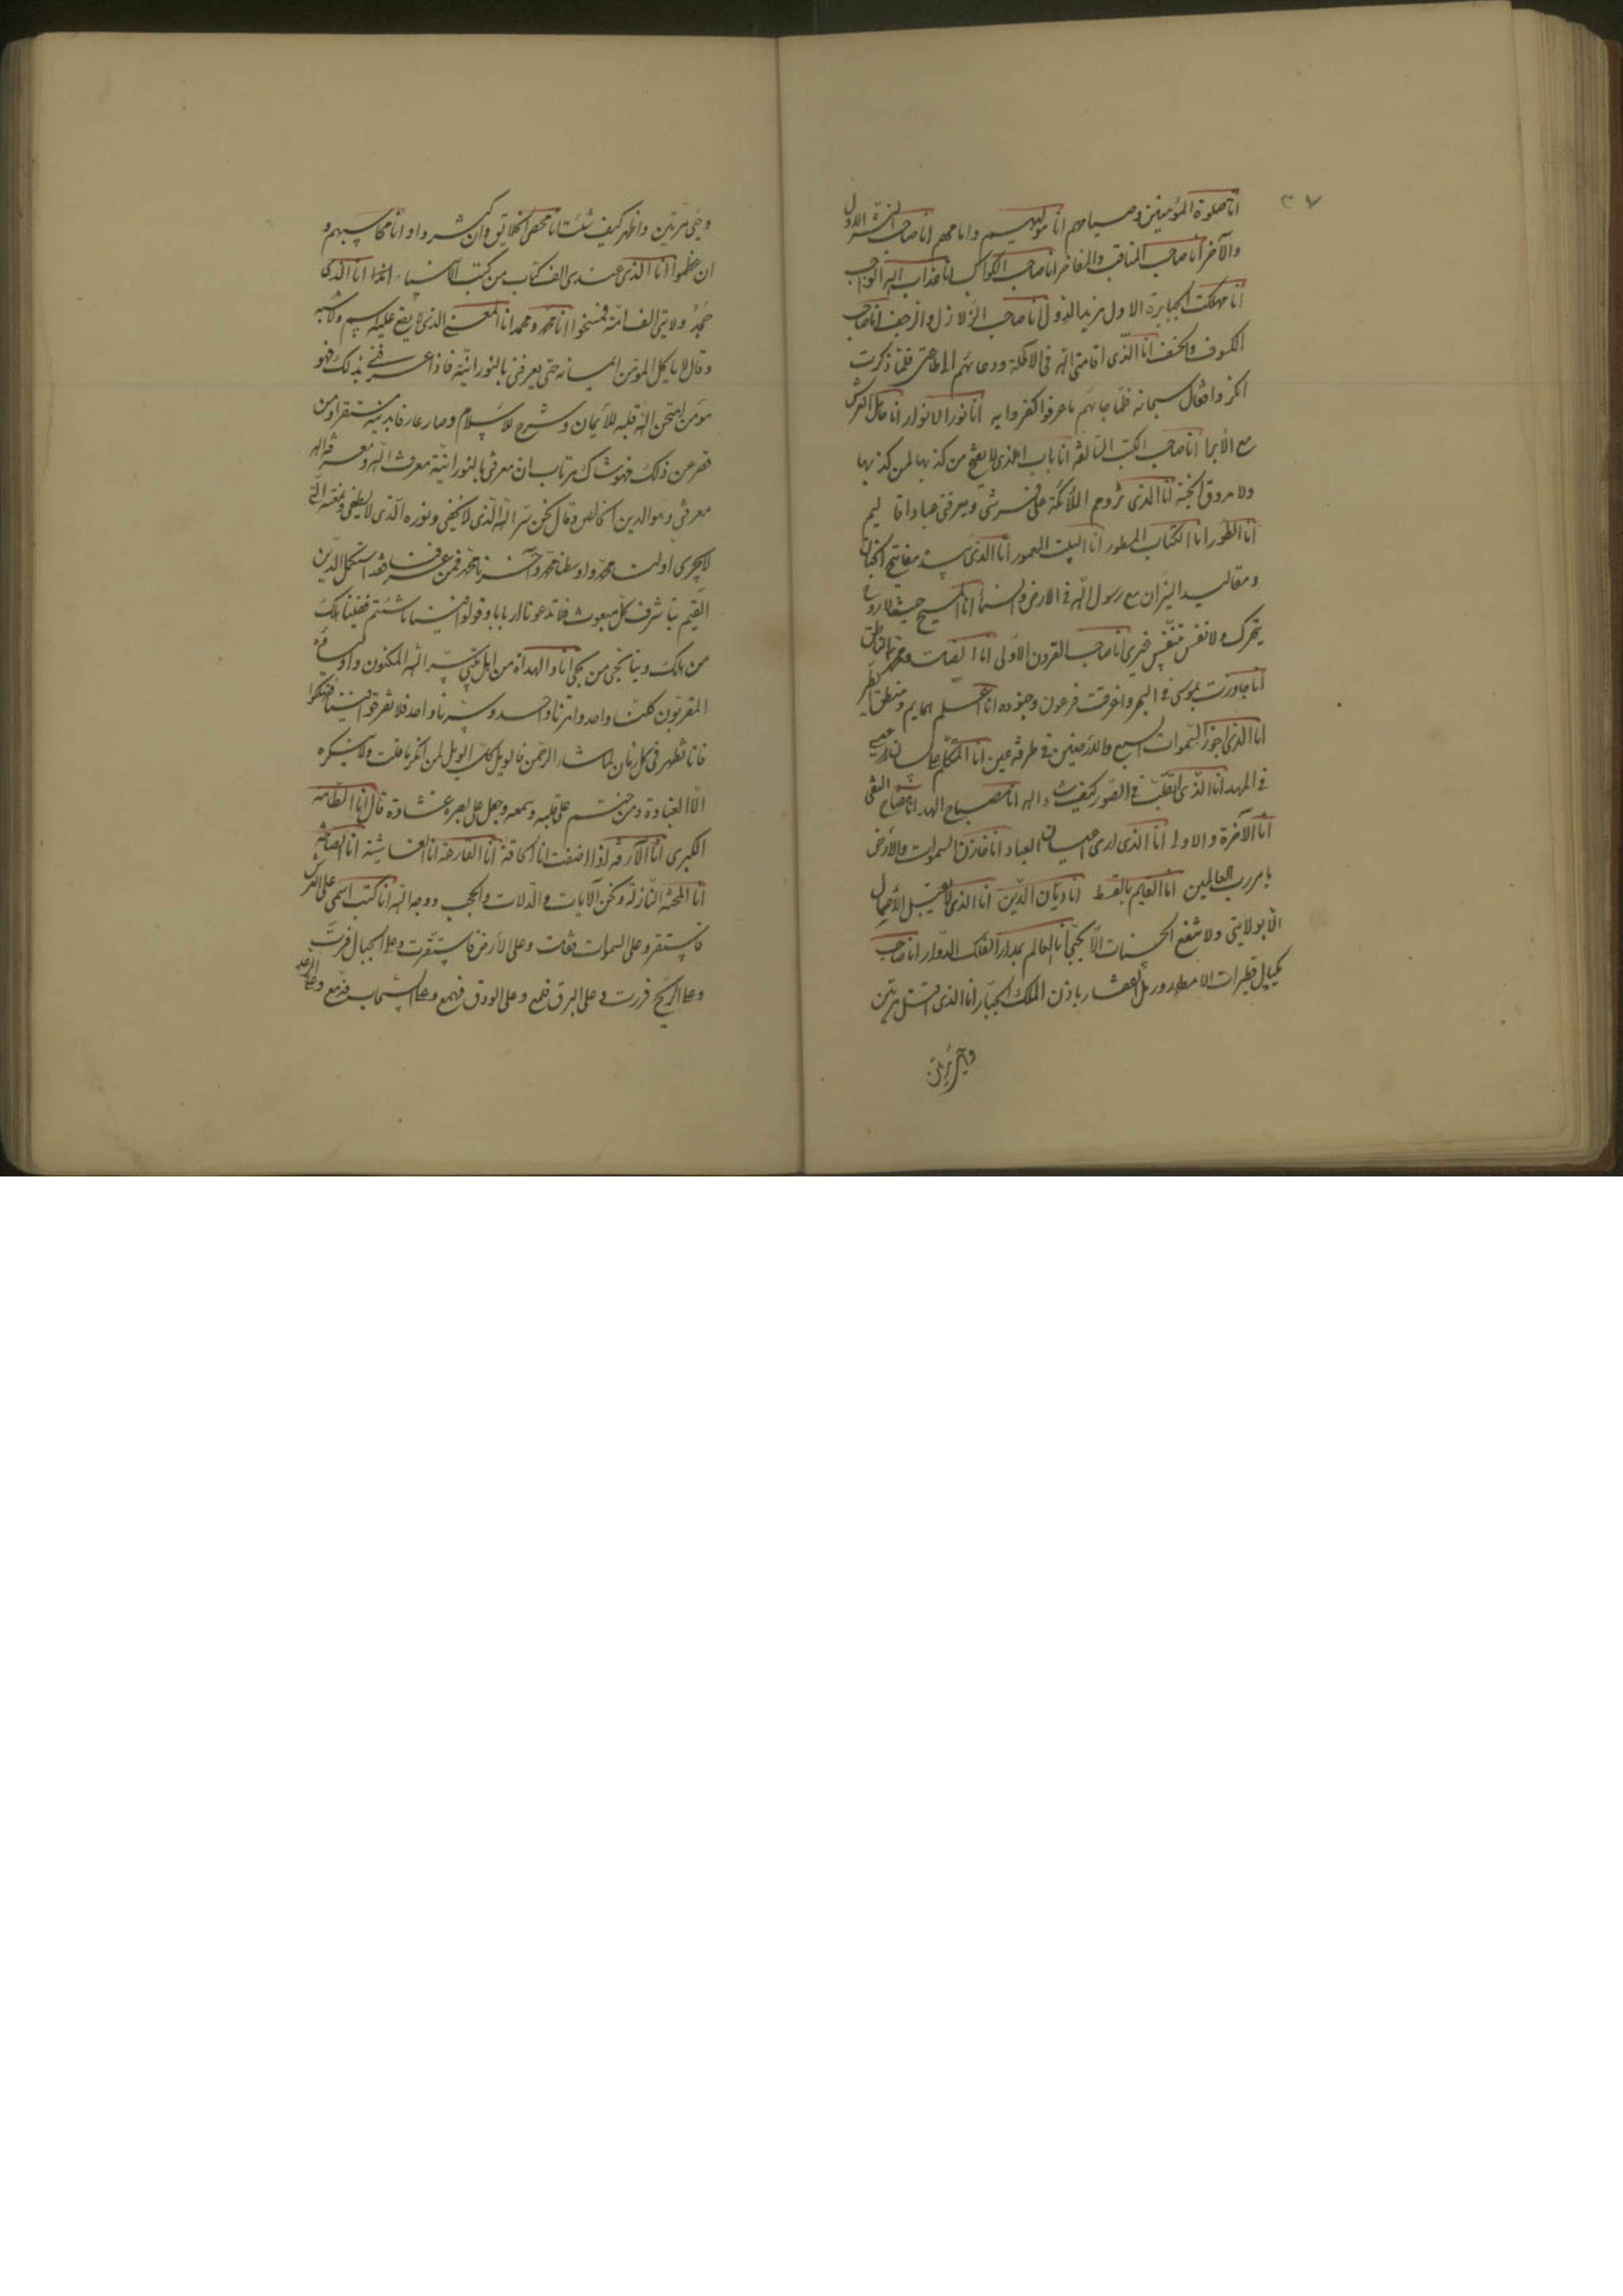 ٣٧
انا صلوة المؤمنين وصيامهم انا مولاهم وامامهم انا صاحب النشر الاول
والآخر انا صاحب المناقب والمفاخر انا صاحب الكواكب انا عذاب الله الواصب
انا مهلك الجبابرة الاول مزيل الدول انا صاحب الزلازل والرجف انا صاحب
الكسوف والخسف انا الذى اقامنى الله فى الاظلة ودعاهم الى طاعتى فلما ذكرت
انكروا فقال سبحانه فلما جاءهم ما عرفوا كفروا به انا نور الانوار انا حامل العرش
مع الابرار انا صاحب الكتب السالفة انا باب الله الذى لا يفتح من كذب بها لمن كذب بها
ولا يذوق الجنة انا الذى تزدحم الملائكة على فرشى ويعرفنى عباد اقاليم
انا الطور انا الكتاب المسطور انا البيت المعمور انا الذى بيده مفاتيح الجنان
ومقاليد النيران مع رسول الله فى الارض والسماء انا المسيح حيث لا روح
يتحرك ولا نفس تتنفس غيرى انا صاحب القرون الاولى انا الصامت ومحمد الناطق
انا جاوزت بموسى فى البحر واغرقت فرعون وجنوده انا اعلم هماهم ومنطق الطير
انا الذى اجوز السموات السبع والارضين فى طرفة عين انا المتكلم على لسان عيسى
فى المهد انا الذى اتقلب فى الصور كيف شاء الله انا مصباح الهدى انا مفتاح التقى
انا الآخرة والاولى انا الذى ارى اعمال العباد انا خازن السموات والارض
بامر رب العالمين انا القائم بالقسط انا ديان الدين انا الذى لا تقبل الاعمال
الا بولايتى ولا تنفع الحسنات الا بحبى انا العالم بمدار الفلك الدوار انا صاحب
مكيال قطرات الامطار ورمل القفار باذن الملك الجبار انا الذى اقتل مرتين
واحيى مرتين
وحيى مرتين واظهر كيف شئت انا محصى الخلايق وان كثروا وانا محاسبهم و
ان عظموا انا الذى عندى الف كتاب من كتب الانبياء انا الذى
جحد ولايتى الف امة فمسخوا انا محمد ومحمد انا انا المعنى الذى لا يقع عليه اسم ولا شبه
وقال لا يكمل المؤمن ايمانه حتى يعرفنى بالنورانية فاذا عرفنى بذلك فهو
مؤمن امتحن الله قلبه للايمان وشرح للاسلام وصار عارفا بدينه مستقرا ومن
قصر عن ذلك فهو شاك مرتاب ان معرفتى بالنورانية معرفة الله ومعرفة الله
معرفتى وهو الدين الخالص وقال نحن سر الله الذى لا يخفى ونوره الذى لا يطفى ونعمته التى
لا تجزى اولنا محمد واوسطنا محمد وآخرنا محمد فمن عرفنا فقد استكمل الدين
القيم بنا شرف كل مبعوث فلا تدعونا اربابا وقولوا فينا ما شئتم ففينا هلك
من هلك وبنا نجى من نجى انا والهداة من اهل بيتى سر الله المكنون واولياؤه
المقربون كلنا واحد وامرنا واحد وسرنا واحد فلا تفرقوا فينا فتهلكوا
فانا نظهر فى كل زمان لما شاء الرحمن فالويل كل الويل لمن انكر ما قلت ولا ينكره
الا العباوة ومن ختم على قلبه وسمعه وجعل على بصره غشاوة قال انا الطامة
الكبرى انا الآزفة اذا ازفت انا الحاقة انا القارعة انا الغاشية انا الصاخة
انا المحنة النازلة ونحن الآيات والدلالات والحجب ووجه الله انا كتب اسمى على العرش
فاستقر وعلى السموات فقامت وعلى الارض فاستقرت وعلى الجبال فرست
وعلى الريح فذرت وعلى البرق فلمع وعلى الودق فهمع وعلى السحاب فدمع وعلى الرعد